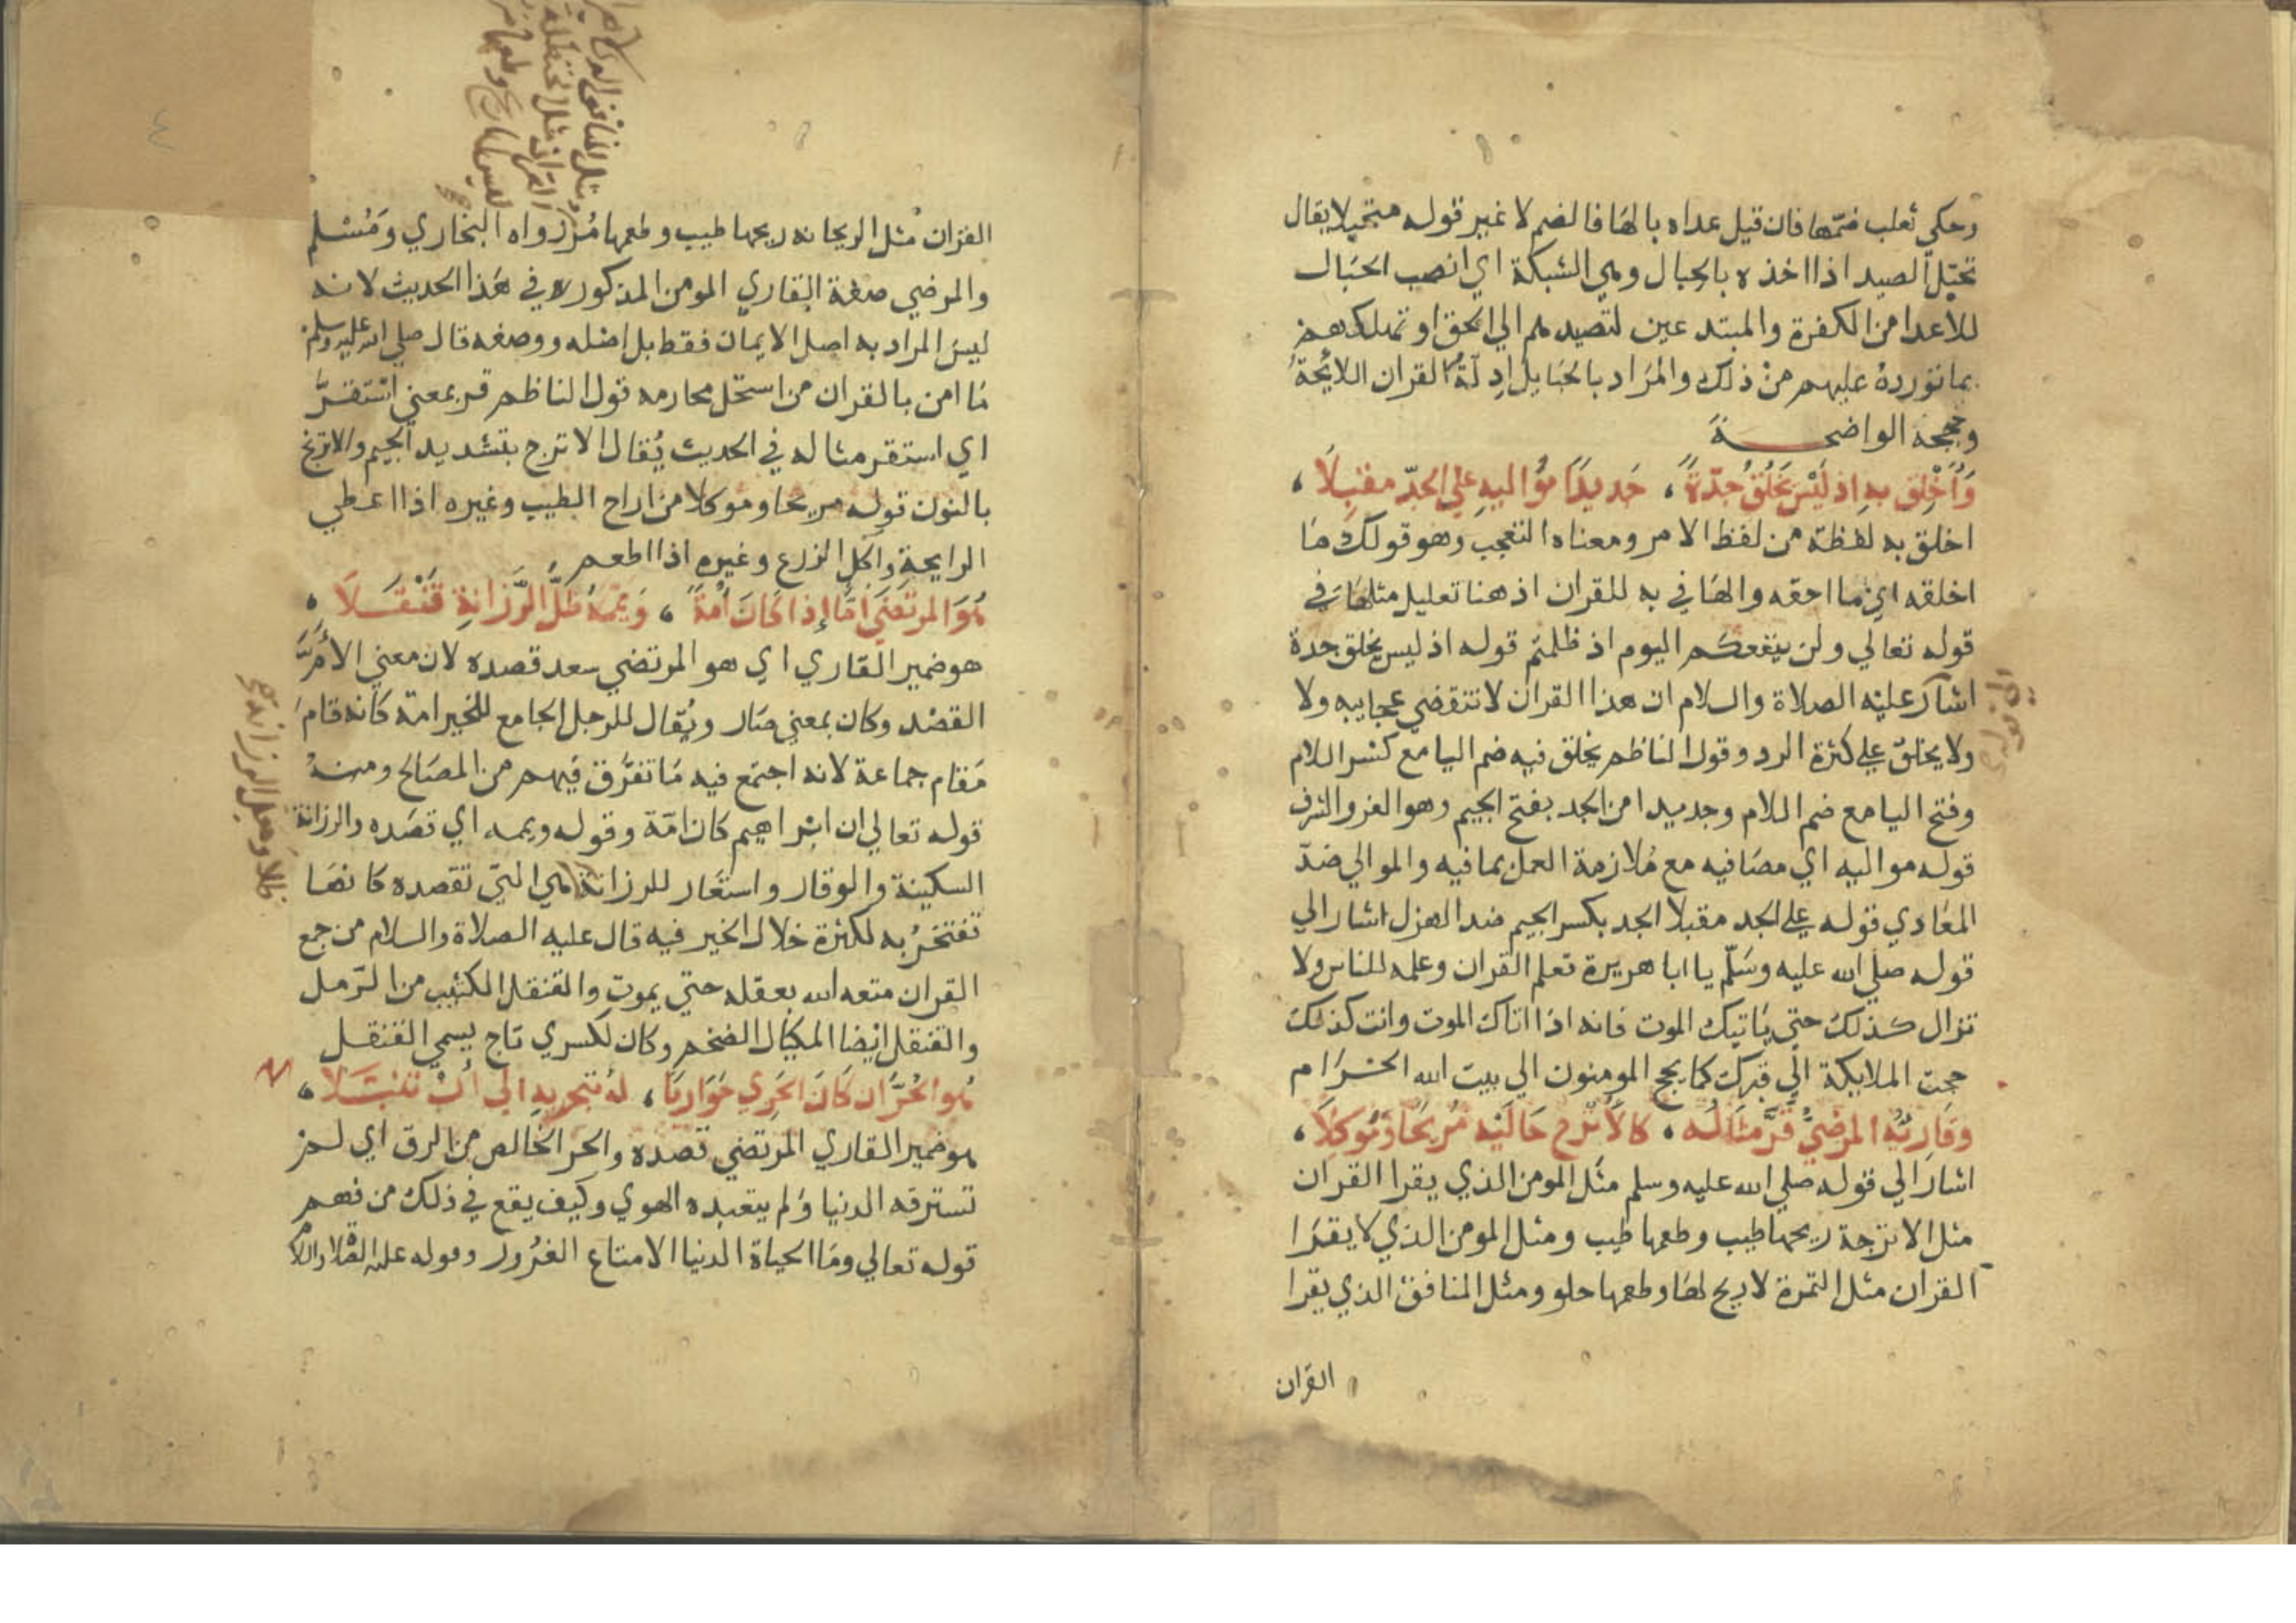 وحكي ثعلب ضمها فان قيل عداه بالها فالضم لا غير قوله متحبلا يقال
تحبل الصيد اذا اخذه بالحبال وهي الشبكة اي انصب الحبال
للاعدا من الكفرة والمبتدعين لتصيدهم الي الحق او تهلكهم
بما تورده عليهم من ذلك والمراد بالحبايل ادلة القران اللايحة
وحججه الواضحة
وَأَخْلِق بهِ اذ لَيْسَ يَخْلُقُ جِدّةً، جَديدًا مُواليهِ علي الجدّ مقبلاَ،
اخلق به لفظة من لفظ الامر ومعناه التعجب وهو قولك ما
اخلقه اي ما احقه والها في به للقران اذ هنا تعليل مثلها في
قوله تعالي ولن ينفعكم اليوم اذ ظلمتم قوله اذ ليس يخلق جدة
اشار عليه الصلاة والسلام ان هذا القران لا تنقضي عجايبه ولا
ولا يخلق علي كثرة الرد وقول الناظم يخلق فيه ضم اليا مع كسر اللام
وفتح اليا مع ضم اللام وجديدا من الجد بفتح الجيم وهو العز والشرف
قوله مواليه اي مصافيه مع ملازمة العمل بما فيه والموالي ضد
المعادي قوله علي الجد مقبلا الجد بكسر الجيم ضد الهزل اشار الي
قوله صلي الله عليه وسلّم يا ابا هريرة تعلم القران وعلمه للناس ولا
تزال كذلك حتي ياتيك الموت فانه اذا اتاك الموت وانت كذلك
حجت الملايكة الي قبرك كما يحج المومنون الي بيت الله الحرام
وقاريُه المرضيُّ قَرَّ مثالُه، كالأترج حاليْه مُريحًا وَمُوكلاَ،
اشار الي قوله صلي الله عليه وسلم مثل المومن الذي يقرا القران
مثل الاترجة ريحها طيب وطعمها طيب ومثل المومن الذي لا يقرا
القران مثل التمرة لا ريح لها وطعمها حلو ومثل المنافق الذي يقرا
القران
٤
القران مثل الريحانه ريحها طيب وطعمها مر رواه البخاري ومسلم
والمرضي صفة القاري المومن المذكور في هذا الحديث لانه
ليس المراد به اصل الايمان فقط بل اصله ووصفه قال صلي الله عليه وسلم
ما امن بالقران من استحل محارمه قول الناظم قر بمعني استقرَّ
اي استقر مثاله في الحديث يُقال الاترج بتشديد الجيم والاترنج
بالنون قوله مريحا وموكلا من اراح الطيب وغيره اذا اعطي
الرايحة واكل الزرع وغيره اذا اطعم
هُوَ المرتضَي أمًّا إذا كانَ أُمةً، وَيمّمهُ ظلُّ الرَّزانةِ قَنْقَلاَ،
هو ضمير القاري اي هو المرتضي سعد قصده لان معني الام
القصد وكان بمعني صار ويُقال للرجل الجامع للخير امة كانه قام
مقام جماعة لانه اجتمع فيه ما تفرّق فيهم من المصالح ومنه
قوله تعالي ان ابراهيم كان امّة وقوله ويممه اي قصده والرزانة
السكينة والوقار واستعار للرزانة هي التي تقصده كانها
تفتخر به لكثرة خلال الخير فيه قال عليه الصلاة والسلام من جمع
القران متعه الله بعقله حتي يموت والقنقل الكثيب من الرّمل
والقنقل ايضا المكيال الضخم وكان لكسري تاج يسمي القنقل
هُو الحُرَّ ان كَانَ الحَرِي حَوَاريًا، لهُ بتحَرِيهِ الي أنْ تَنَبَّلاَ،
هو ضمير القاري المرتضي قصده والحر الخالص من الرق اي لم
تسترقه الدنيا ولم يتعبده الهوي وكيف يقع في ذلك من فهم
قوله تعالي وما الحياة الدنيا الا متاع الغرور وقوله عليه الصلاة والسلام